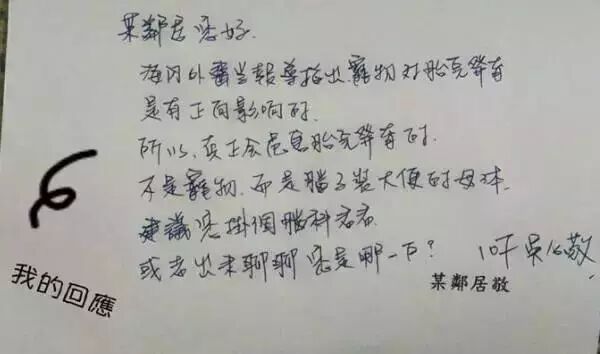 某鄰居您好.
海內外醫學報導指出寵物對胎兒發育
是有正面影响的.
所以,真正会危害胎兒發育的.
不是寵物.而是腦子裝大便的母体.
建議您掛個腦科看看
或者出来聊聊您是哪一下?
10F 吳公敬
某鄰居敬
我的回應